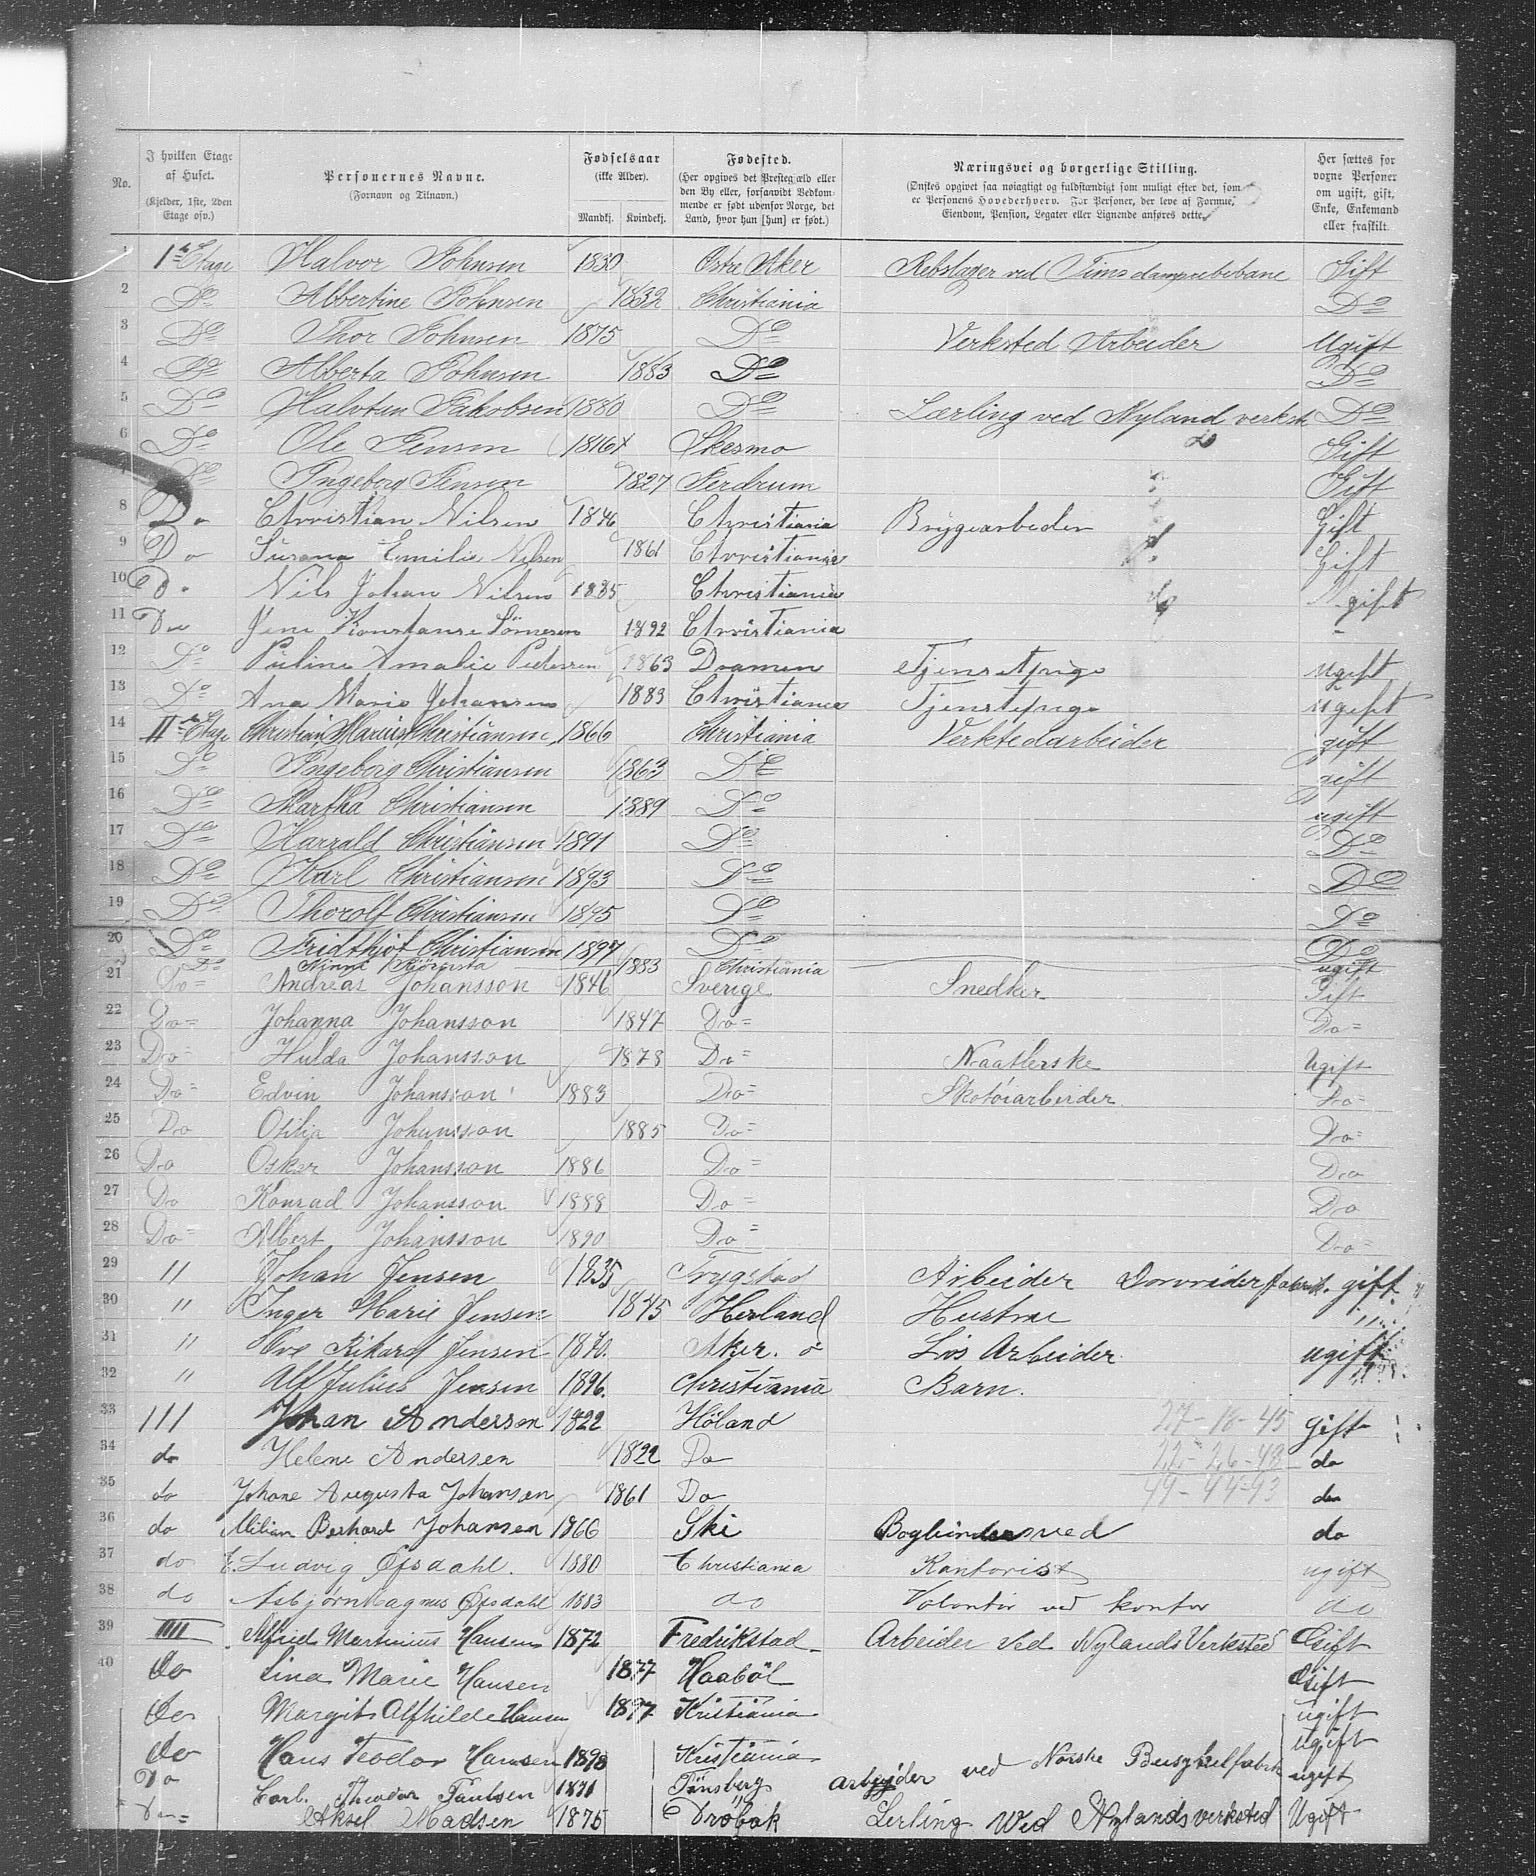 No.
I hvilken Etage af Huset. (Kjelder, 1ste, 2den Etage osv.)
Personernes Navne. (Fornavn og Tilnavn.)
Fødselsaar (ikke Alder). Mandkj. Kvindekj.
Fødested. (Her opgives det Prestegjæld eller den By eller, forsaavidt Vedkommende er født udenfor Norge, det Land, hvor han [hun] er født.)
Næringsvei og borgerlige Stilling. (Ønskes opgivet saa nøiagtigt og fuldstændigt som muligt efter det, som er Personens Hovederhverv. For Personer, der leve af Formue, Eiendom, Pension, Legater eller Lignende anføres dette.)
Her sættes for voxne Personer om ugift, gift, Enke, Enkemand eller fraskilt.
1 1ste Etage Halvor Johnsen 1830 Østre Aker Rebslager ved Fims damprebebane Gift
2 Do Albertine Johnsen 1832 Christiania Do
3 Do Thor Johnsen 1875 Do Verksted Arbeider Ugift
4 Do Alberta Johnsen 1883 Do Do
5 Do Halvtan Jakobsen 1880 Do Lærling ved Nyland verkst Do
6 Do Ole Jensen 1816 Skesmo Gift
7 Do Ingeborg Jensen 1827 Ferdrum Gift
8 Do Christian Nilsen 1846 Christiania Brygearbeder Gift
9 Do Susana Emilie Nilsen 1861 Christiania Gift
10 Do Nils Johan Nilsen 1885 Christiania Ugift
11 Do Jene Konstanse 1892 Christiania
12 Do Puline Amalie Pedersen 1863 Dramen Tjenstpige ugift
13 Do Ana Marie Johansen 1883 Christiania Tjenstpige ugift
14 II Etage Christian Marius Christiansen 1866 Christiania Verktedarbeider gift
15 Do Ingeborg Christiansen 1863 Do gift
16 Do Martha Christiansen 1889 Do ugift
17 Do Harrald Christiansen 1891 Do Do
18 Do Karl Christiansen 1893 Do Do
19 Do Thorolf Christiansen 1895 Do Do
20 Do Fridthjof Christiansen 1897 Do Do
Do Minni 1883 Christiania ugift
21 Do Andreas Johansson 1846 Sverige Snedker Gift
22 Do Johanna Johansson 1847 Do Do
23 Do Hulda Johansson 1873 Do Naatlerske Ugift
24 Do Edvin Johansson 1883 Do Skotøiarbeider Do
25 Do Otilia Johansson 1885 Do Do
26 Do Osker Johansson 1886 Do Do
27 Do Konrad Johansson 1888 Do Do
28 Do Albert Johansson 1890 Do Do
29 11 Johan Jensen 1835 Trygstad Arbeider fabrik. gift
30 " Inger Marie Jensen 1845 Herland Hustrue "
31 " Ove Rikard Jensen 1870. Aker. ø Løs Arbeider ugift
32 " Alf Julius Jensen 1896. Christiania Barn. "
33 111 Johan Andersen 1822 Høland 27-18-45 gift
34 do Helene Andersen 1822 Do 22-26-48 do
35 do Johane Augusta Johansen 1861 Do 49-44-93 do
36 do Milian Berhard Johansen 1866 Ski Bogbinder ved do
37 do E. Ludvig Opsdahl. 1880 Christiania Kontorist ugift
38 do Asbjørn Magnus Opsdahl 1883 do Volontør ved kontor do
39 IIII Alfred Martinius Hansen 1872 Fredrikstad Arbeider ved Nylands Verksted Gift
40 do Lina Marie Hansen 1877 Haabøl Gift
do Margit Alfhilde Hansen 1897 Kristiania ugift
do Hans Teodor Hansen 1898 Kristiania ugift
Do Carl. Theodor Paulsen 1871 Tønsberg arbejder ved Norske Busykelfabrik ugift
Do Aksel Madsen 1875 Drøbak Lerling ved Nylands verksted Ugift